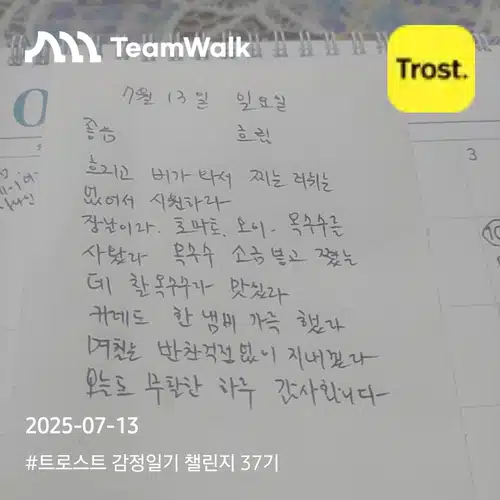 TeamWalk
Trost.
7월 13일 일요일
좋음 흐림
흐리고 비가 와서 찌는 더위는
없어서 시원하다
장난이라. 토마토, 오이. 옥수수를
사왔다 옥수수 소금넣고 쪘는
데 찰옥수수라 맛있다
카레도 한 냄비 가득 했다
며칠은 반찬걱정없이 지내겠다
오늘도 무탈한 하루 감사합니다
3
10
2025-07-13
#트로스트 감정일기 챌린지 37기